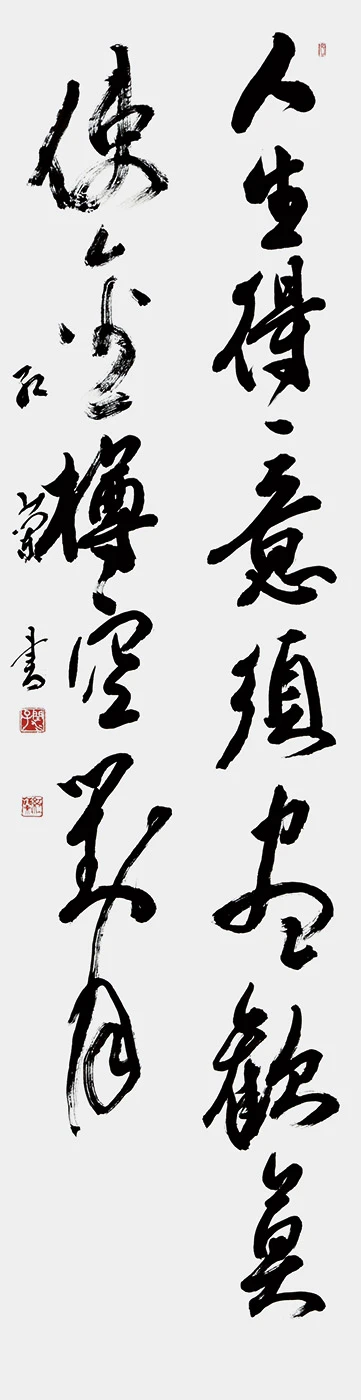 人生得意須盡歡莫
使金樽空對月
紅蘭書